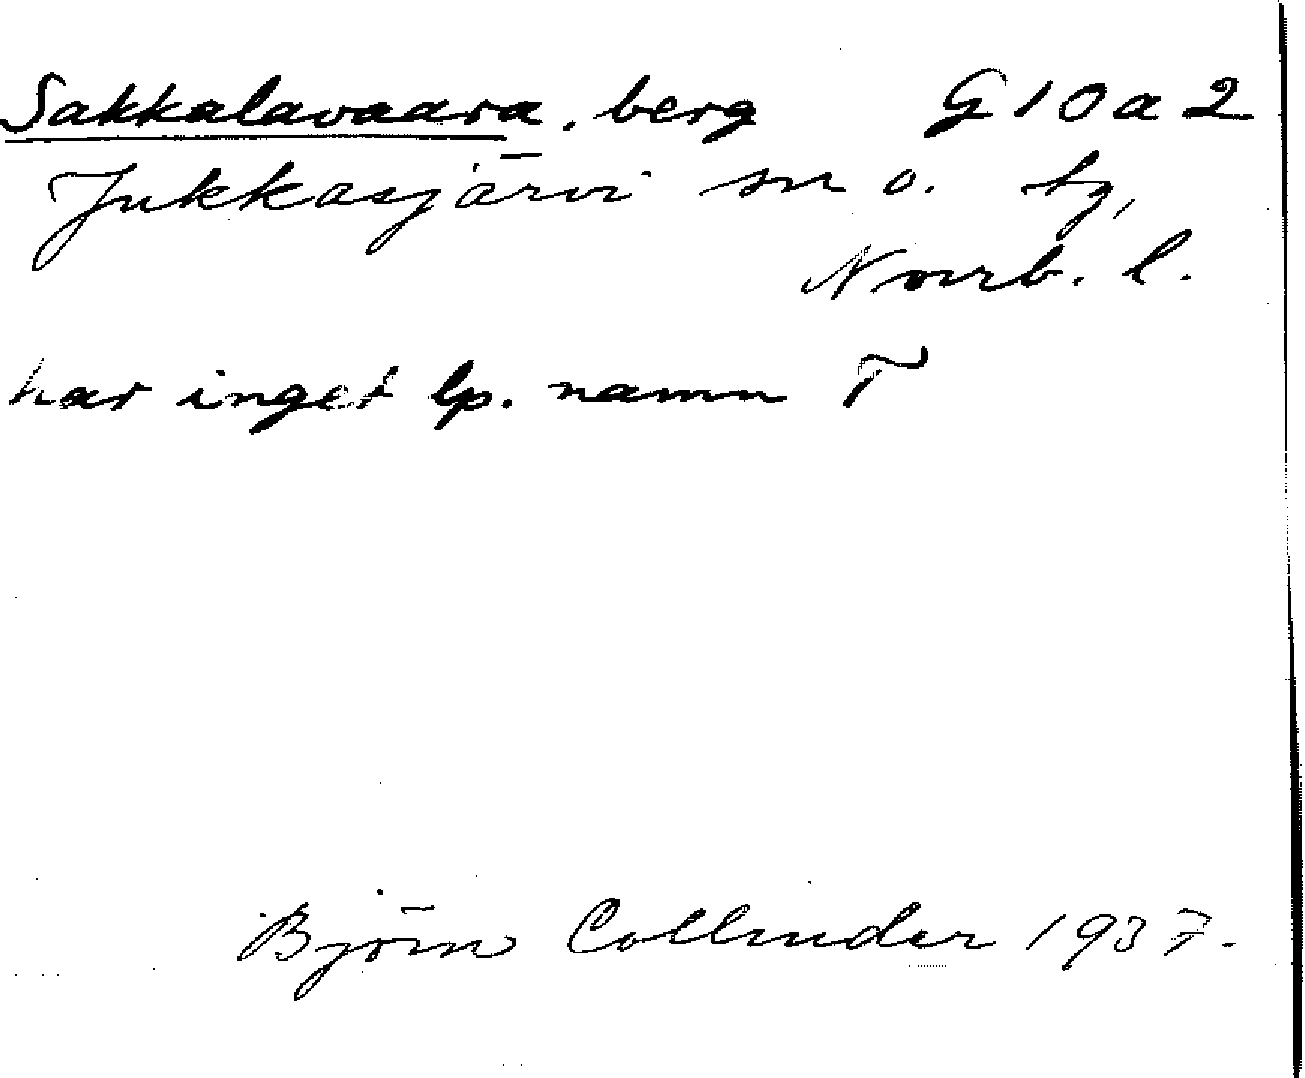 Sakkalavaara, berg G 10 a 2
Jukkasjärvi sn o. tg,
Norrb. l.
har inget lp. namn T
Björn Collinder 1937.